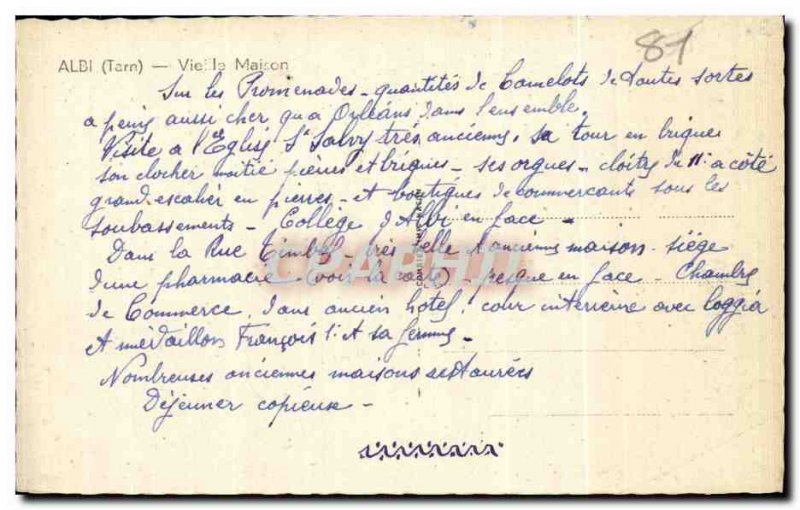 81
ALBI (Tarn) — Vieille Maison
Sur les Promenades - quantités de Camelots de toutes sortes
a peine aussi cher qu'a Orléans dans l'ensemble,
Visite a l'Eglise St Salvy très ancienne, sa tour en briques
son clocher moitié pierres et briques - ses orgues - cloitre du 11e a côté
grand escalier en pierres - et boutiques de commercants sous les
soubassements - Collège d'Albi en face -
Dans la Rue Timbal - très belle et ancienne maison - siège
d'une pharmacie - voir la carte - presque en face - Chambre
de Commerce, dans ancien hotel, cour interieure avec loggia
et médaillon François 1er et sa femme -
Nombreuses anciennes maisons restaurées
Déjeuner copieux -